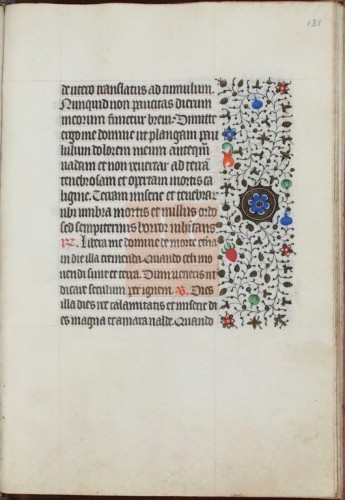 131
de utero translatus ad tumulum.
Nunquid non paucitas dierum
meorum finietur brevi. Dimitte
ergo me domine ut plangam pau
lulum dolorem meum antequam
vadam et non revertar ad terrã
tenebrosam et opertam mortis ca
ligine. Terram miserie et tenebrar
ubi umbra mortis et nullus ord
sed sempiternus horror inhitans
R. Libera me domine de morte etna
in die illa tremenda. Quando celi mo
vendi sunt et terra. Dum veneris iu
dicare seculum per ignem. V. Dies
illa dies ire calamitatis et miserie di
es magna et amara valde. Quando